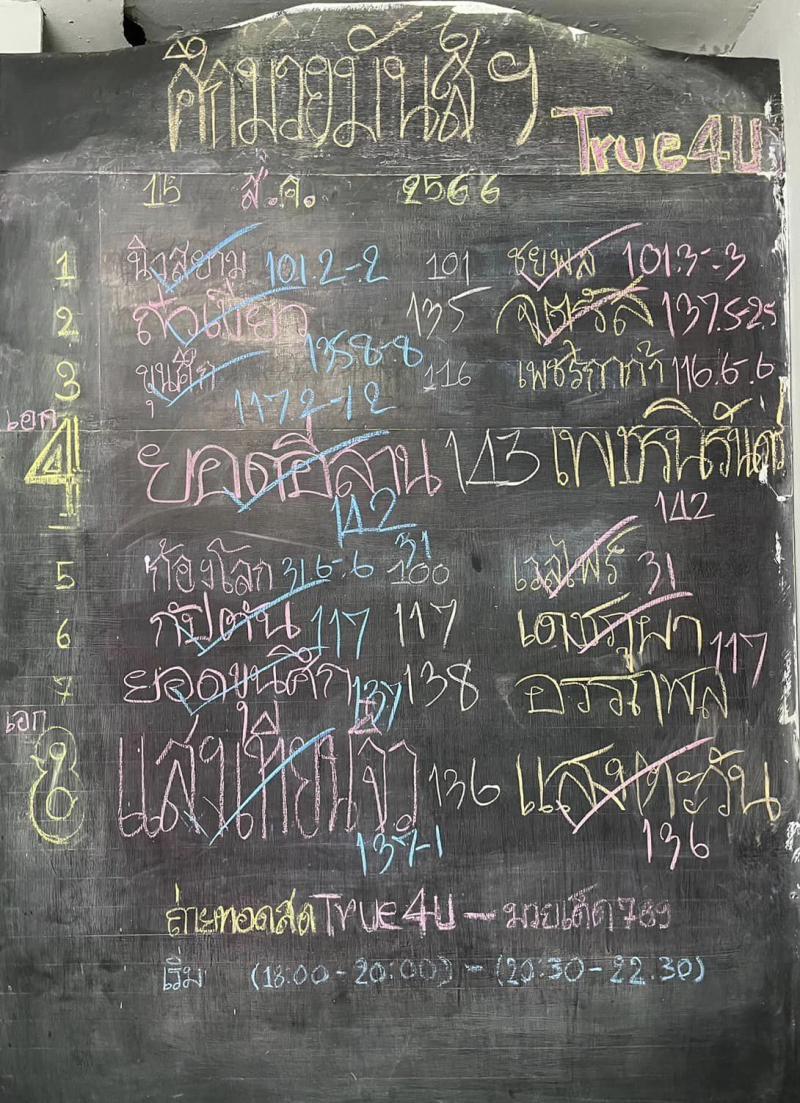 ศึกมวยมันส์ฯ True4U
15 ส.ค. 2566
1 นิวสยาม 101.2-.2 101 ชยพล 101.3-.3
2 สิงเขียว 135 จตุรัส 137.5-2.5
135.8-.8
3 ขุนศึก 116 เพชรกาก้า 116.6-.6
117.2-1.2
เอก
4 ยอดอีสาน 143 เพชรนิรันดร์
142 142
5 ก้องโลก 31.6-.6 31 100 เวสไฟร์ 31
6 กัปตัน 117 117 เดชภูผา 117
7 ยอดขุนศึก 137 138 อรรถพล
เอก
8 แสงเทียนจิ๋ว 136 แสงตะวัน
137-1 136
ถ่ายทอดสด True4U - มวยเด็ด789
เริ่ม (18:00-20:00) - (20:30-22.30)